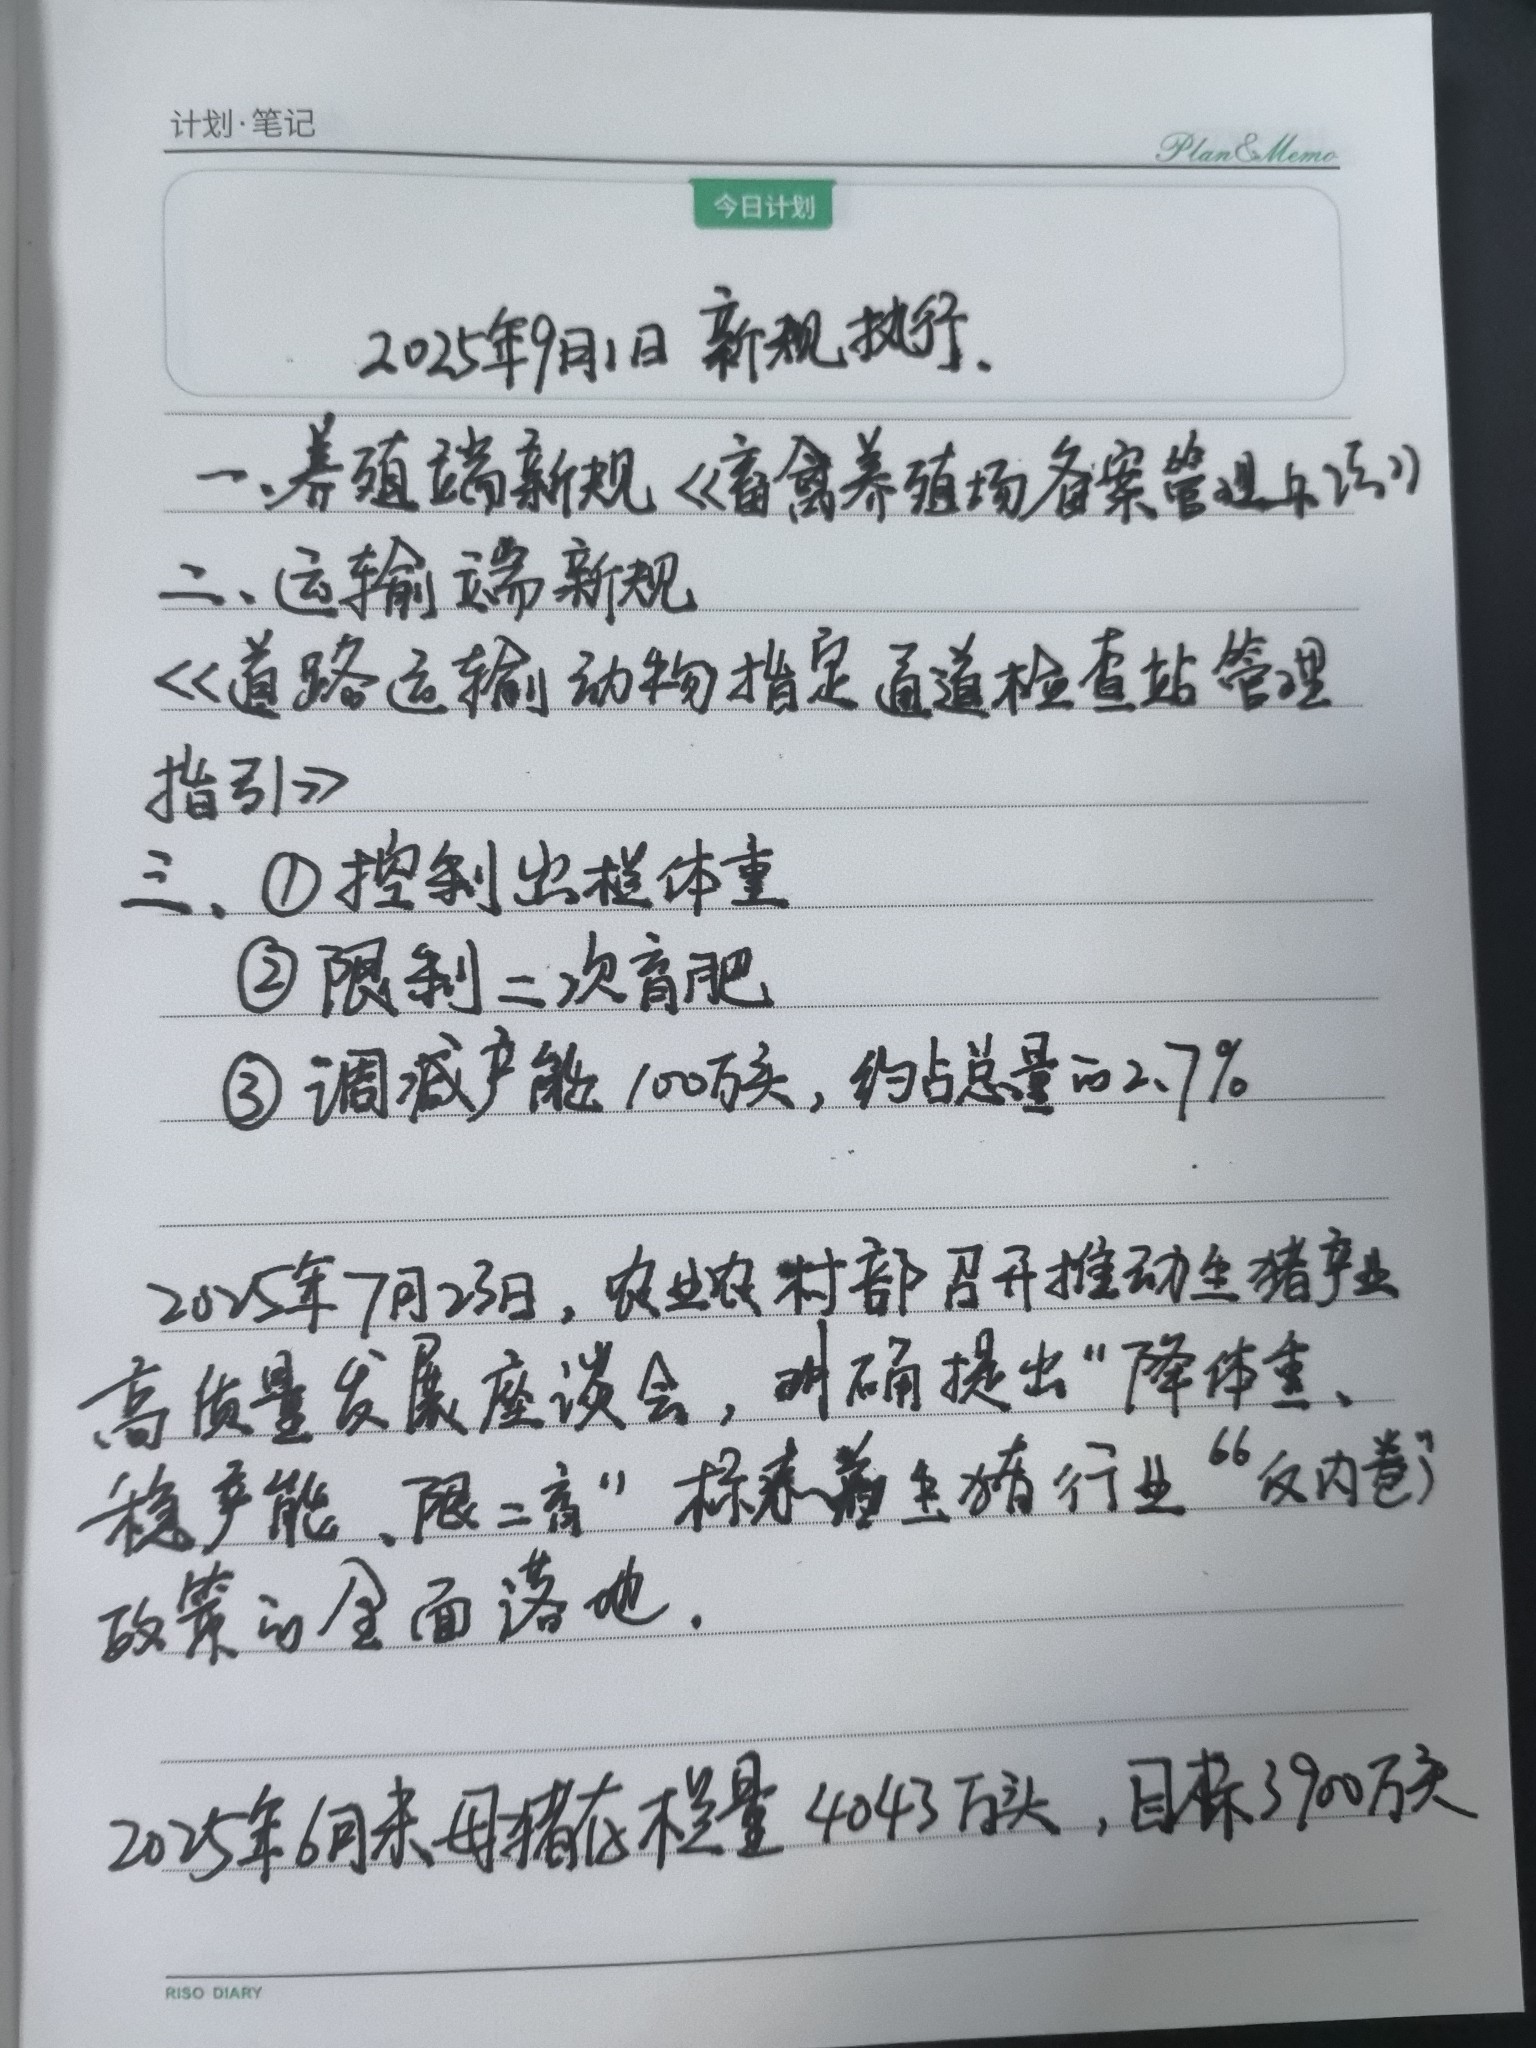 计划·笔记
Plan&Memo
今日计划
2025年9月1日 新规执行.
一、养殖端新规《畜禽养殖场备案管理办法》
二、运输端新规
《道路运输动物指定通道检查站管理
指引》
三、①控制出栏体重
②限制二次育肥
③调减产能100万头,约占总量的2.7%
2025年7月23日,农业农村部召开推动生猪产业
高质量发展座谈会,明确提出“降体重、
稳产能、限二育”标志着生猪行业“反内卷”
政策的全面落地.
2025年6月末母猪存栏量4043万头,目标3900万头
RISO DIARY